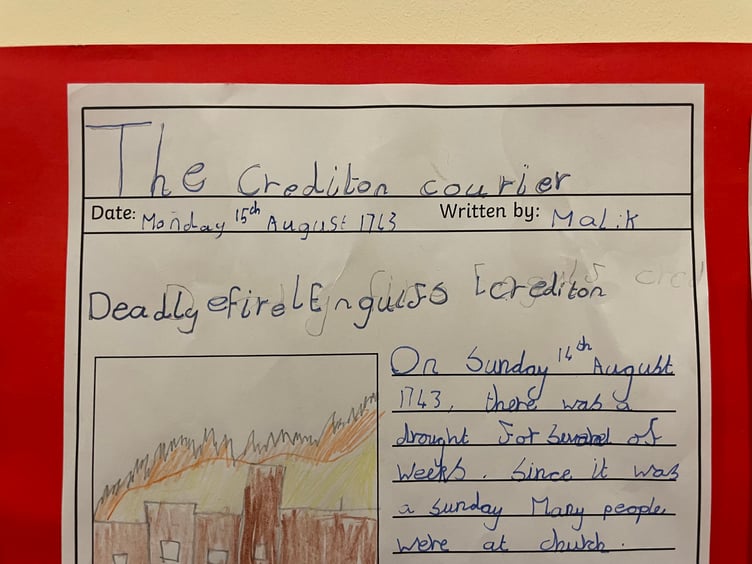 The Crediton courier
Date: Monday 15th August 1743 Written by: Malik
Deadly fire Engulfs crediton
On Sunday 14th August
1743, there was a
drought for several of
weeks. Since it was
a sunday Many people
were at church.